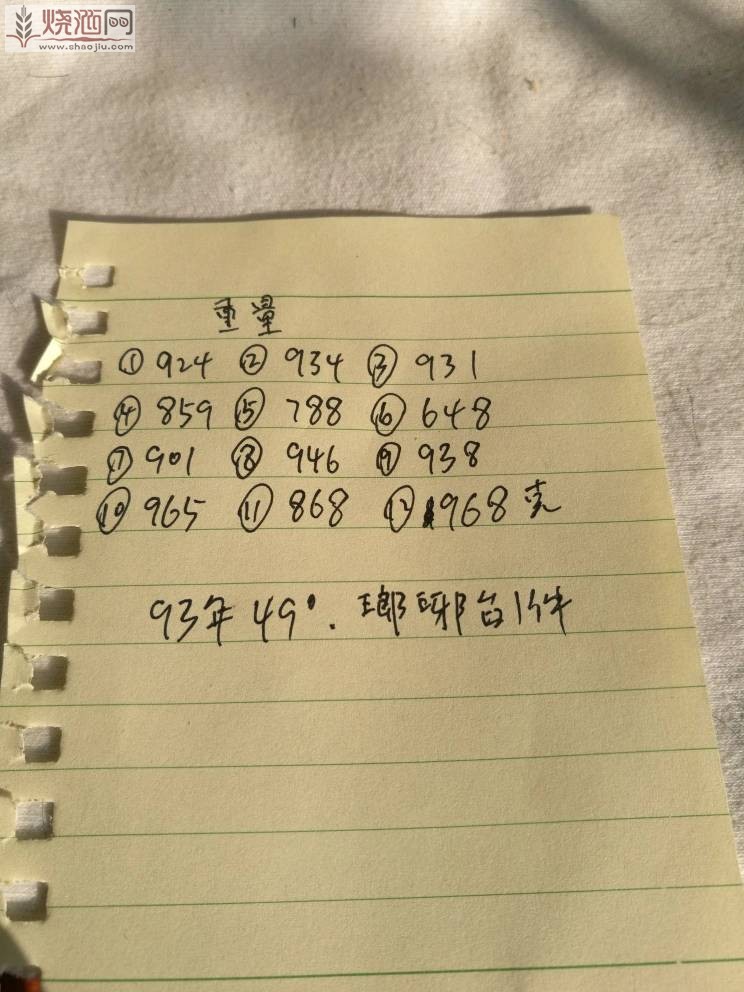 烧酒网
www.shaojiu.com
重量
① 924 ② 934 ③ 931
④ 859 ⑤ 788 ⑥ 648
⑦ 901 ⑧ 946 ⑨ 938
⑩ 965 ⑪ 868 ⑫ 968克
93年49°.琅琊台1件